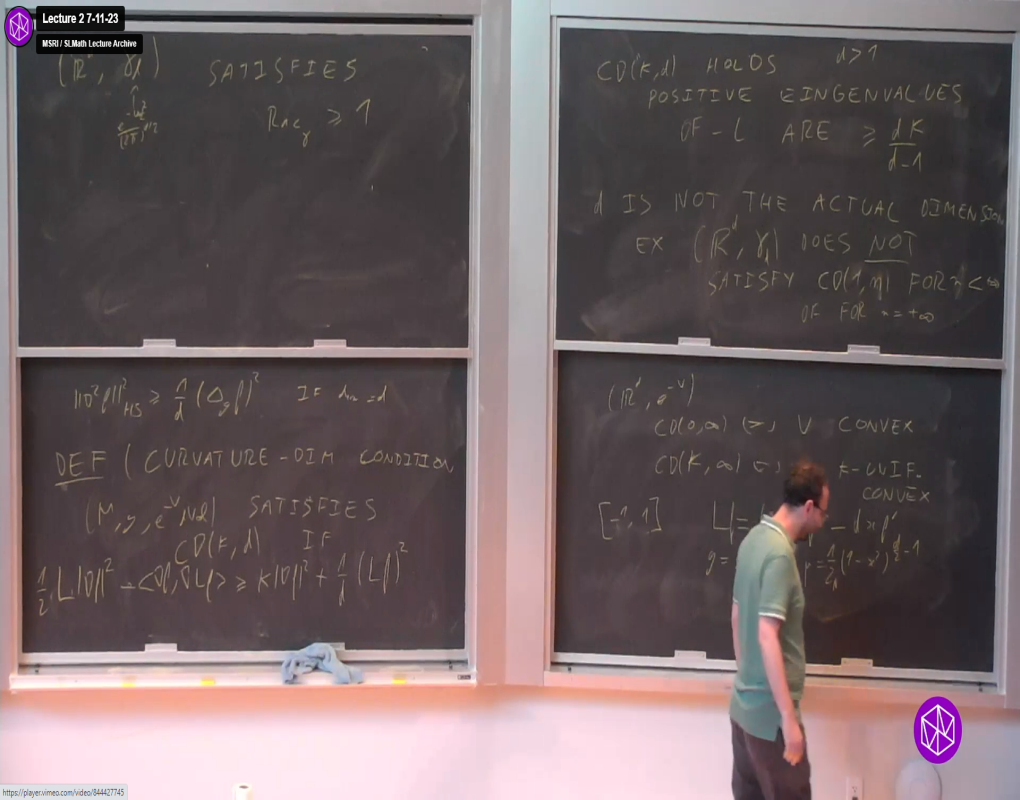 Lecture 2 7-11-23
MSRI / SLMath Lecture Archive
(ℝ^d, γ_d) SATISFIES
Ric_γ ≥ 1
||D²f||²_HS ≥ 1/d (Δ_g f)² IF dim = d
DEF (CURVATURE-DIM CONDITION
(M, g, e^{-V} dvol) SATISFIES
CD(K, d) IF
1/2 L|∇f|² - <∇f, ∇Lf> ≥ K|∇f|² + 1/d (Lf)²
CD(K,d) HOLDS d>1
POSITIVE EINGENVALUES
OF -L ARE ≥ dK/(d-1)
d IS NOT THE ACTUAL DIMENSION
EX (ℝ^d, γ_d) DOES NOT
SATISFY CD(1,n) FOR n < ∞
OF FOR n = +∞
(ℝ^d, e^{-V})
CD(0,∞) <=> V CONVEX
CD(K,∞) <=> K-UNIF.
CONVEX
[-1, 1] L = - d x f'
g = μ = 1/Z_d (1-x²)^{d/2 - 1}
https://player.vimeo.com/video/844427745